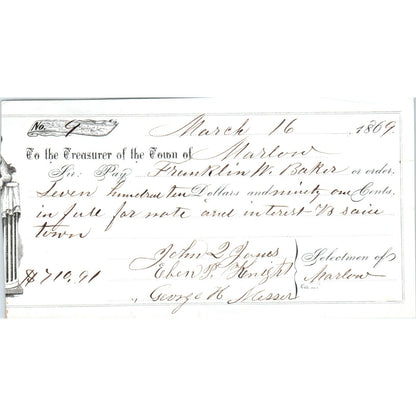 No. 9 March 16 1869.
To the Treasurer of the Town of Marlow
Sir: Pay Franklin W. Baker or order,
Seven hundred ten Dollars and ninety one Cents,
in full for note and interest vs said
town
John Q Jones
$710,91 Eben T. Knight Selectmen of Marlow
George H Messer